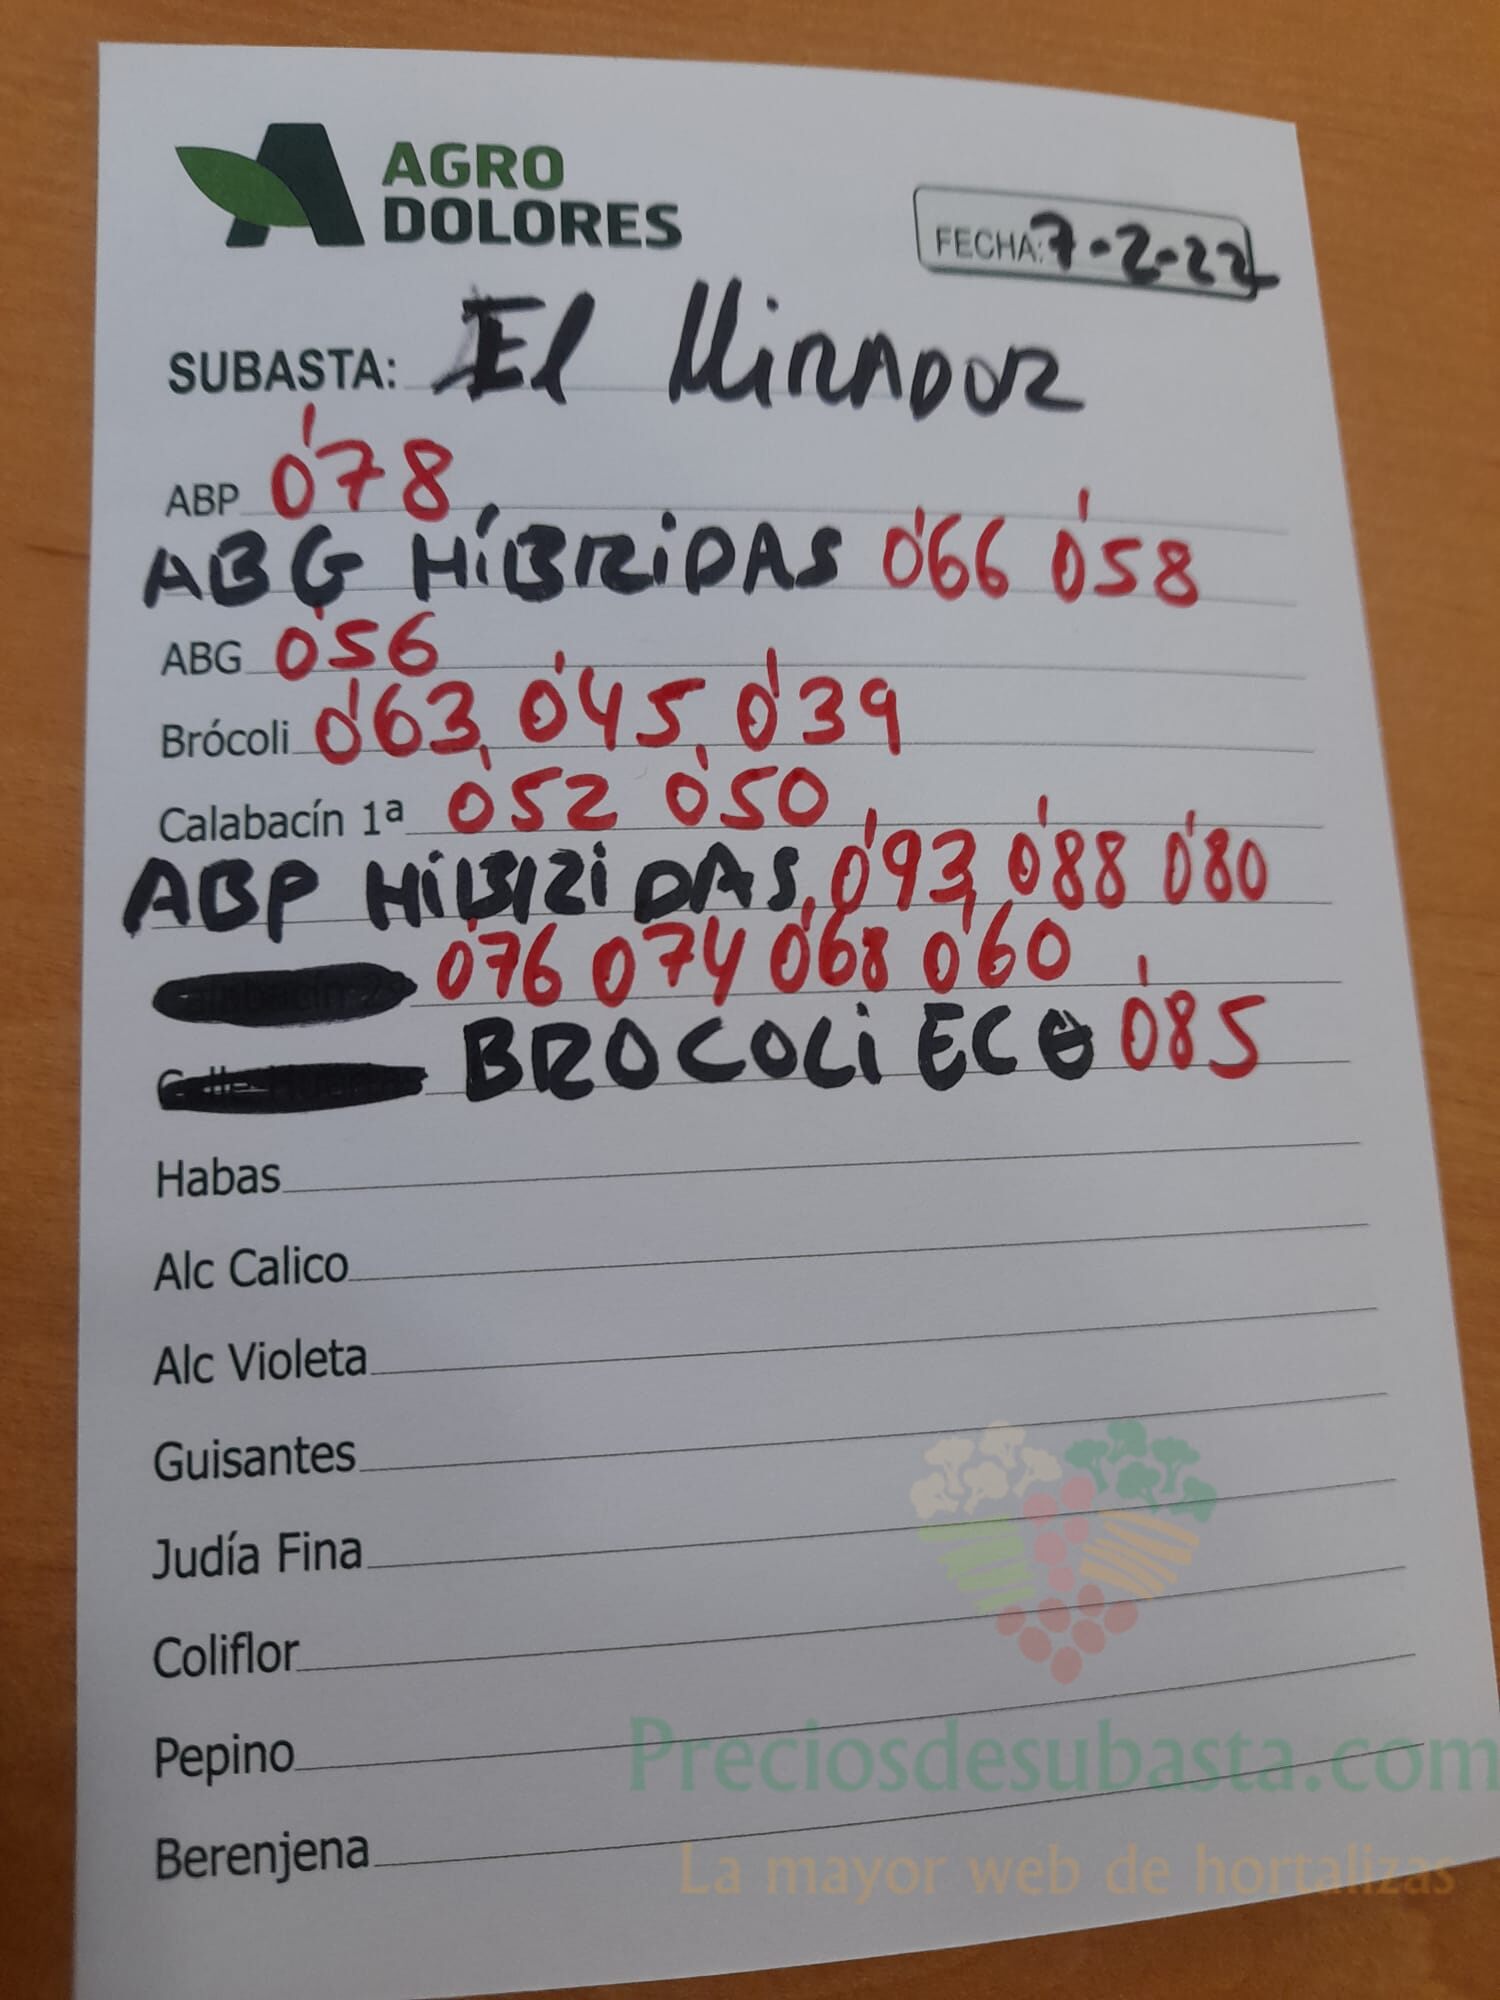 AGRO
DOLORES
FECHA: 7-2-22
SUBASTA: El Mirador
ABP 0'78
ABG HÍBRIDAS 0'66 0'58
ABG 0'56
Brócoli 0'63, 0'45, 0'39
Calabacín 1ª 0'52 0'50
ABP HÍBRIDAS, 0'93, 0'88 0'80
0'76 0'74 0'68 0'60
BROCOLI ECO 0'85
Habas
Alc Calico
Alc Violeta
Guisantes
Judía Fina
Coliflor
Pepino
Berenjena
Preciosdesubasta.com
La mayor web de hortalizas